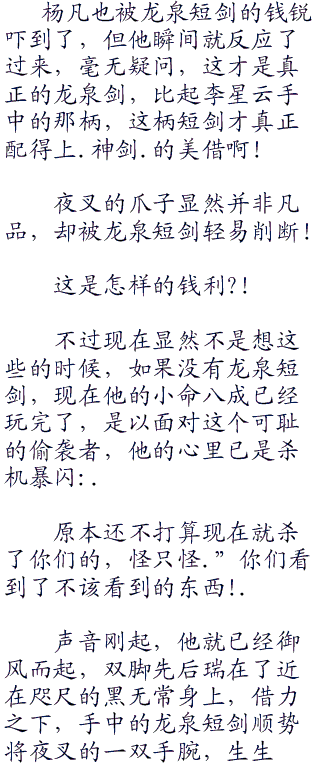 杨凡也被龙泉短剑的钱锐
吓到了，但他瞬间就反应了
过来，毫无疑问，这才是真
正的龙泉剑，比起李星云手
中的那柄，这柄短剑才真正
配得上.神剑.的美借啊！
夜叉的爪子显然并非凡
品，却被龙泉短剑轻易削断！
这是怎样的钱利？！
不过现在显然不是想这
些的时候，如果没有龙泉短
剑，现在他的小命八成已经
玩完了，是以面对这个可耻
的偷袭者，他的心里已是杀
机暴闪:.
原本还不打算现在就杀
了你们的，怪只怪.”你们看
到了不该看到的东西！.
声音刚起，他就已经御
风而起，双脚先后瑞在了近
在咫尺的黑无常身上，借力
之下，手中的龙泉短剑顺势
将夜叉的一双手腕，生生